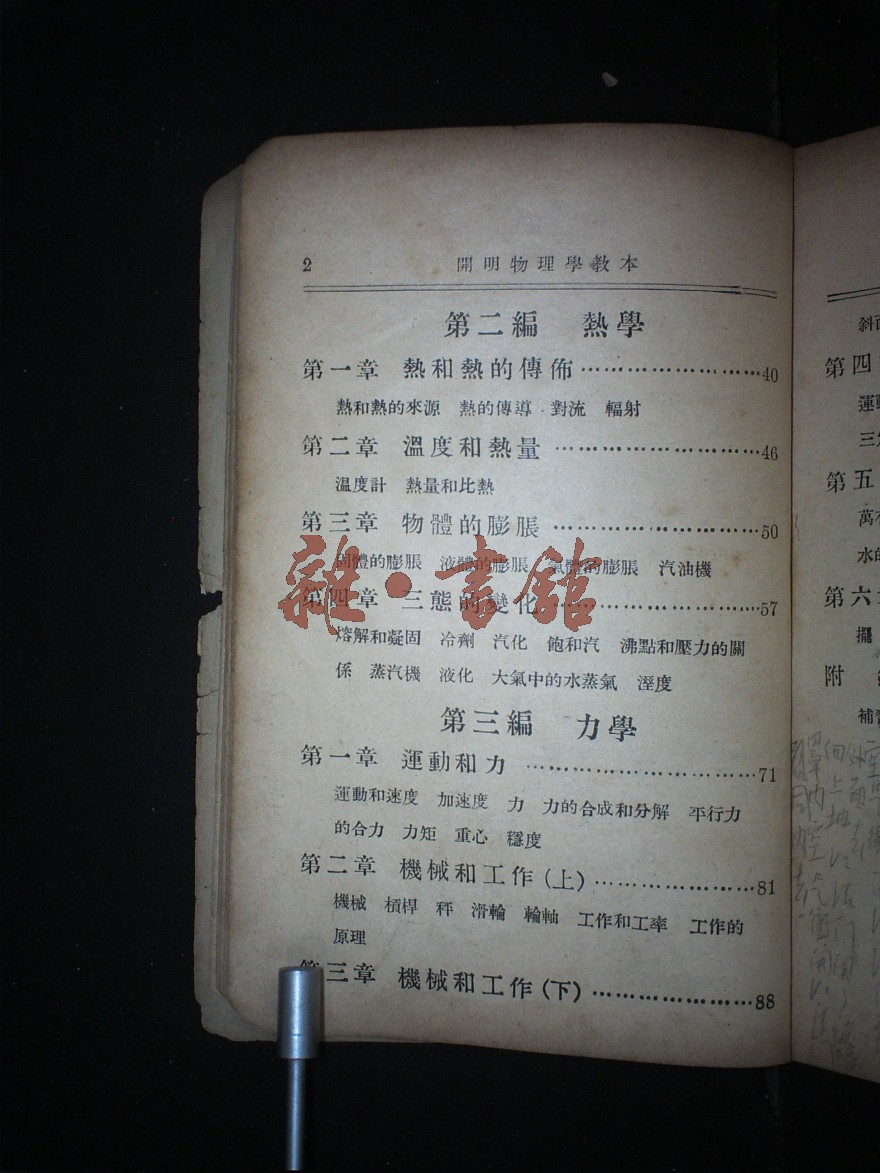 2 開明物理學教本
第二編 熱學
第一章 熱和熱的傳佈……………………40
熱和熱的來源 熱的傳導 對流 輻射
第二章 溫度和熱量……………………46
温度計 熱量和比熱
第三章 物體的膨脹……………………50
固體的膨脹 液體的膨脹 氣體的膨脹 汽油機
第四章 三態的變化……………………57
雜·書館
熔解和凝固 冷劑 汽化 飽和汽 沸點和壓力的關
係 蒸汽機 液化 大氣中的水蒸氣 溼度
第三編 力學
第一章 運動和力……………………71
運動和速度 加速度 力 力的合成和分解 平行力
的合力 力矩 重心 穩度
第二章 機械和工作(上)………………81
機械 槓桿 秤 滑輪 輪軸 工作和工率 工作的
原理
第三章 機械和工作(下)………………88
斜面
第四
三
第五
水的
第六
擺
附